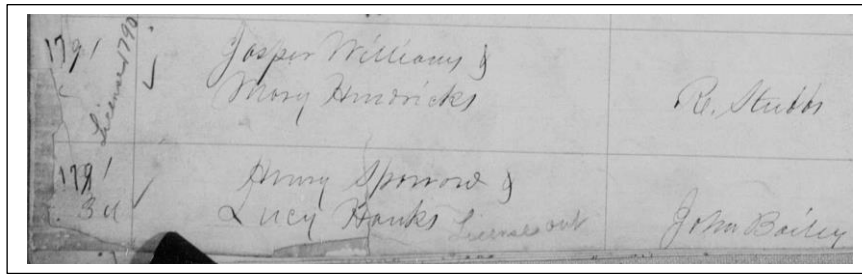 1791
License 1790
Jasper Williams &
Mary Hendricks
R. Stubbs
1791
3d
Henry Sparrow &
Lucy Hanks License out
John Bailey